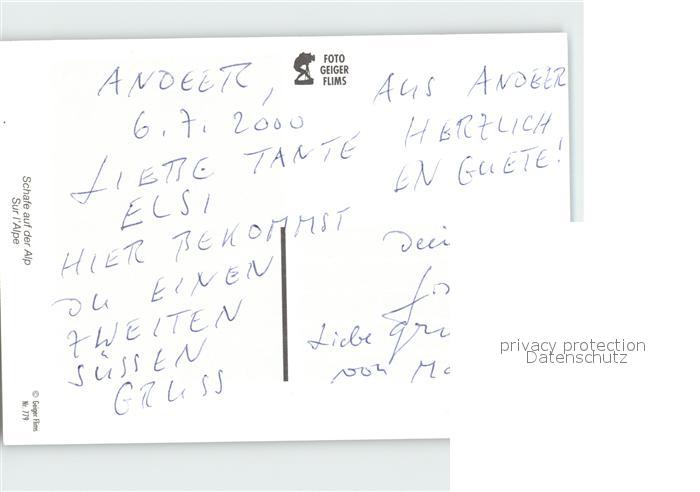 ANDEER,
6.7. 2000
LIEBE TANTE
ELSI
HIER BEKOMMST
DU EINEN
ZWEITEN
SÜSSEN
GRUSS
AUS ANDEER
HERZLICH
EN GUETE!
Dei
Liebe Grü
von Ma
FOTO
GEIGER
FLIMS
Schafe auf der Alp
Sur l'Alpe
© Geiger Flims
Nr. 779
privacy protection
Datenschutz